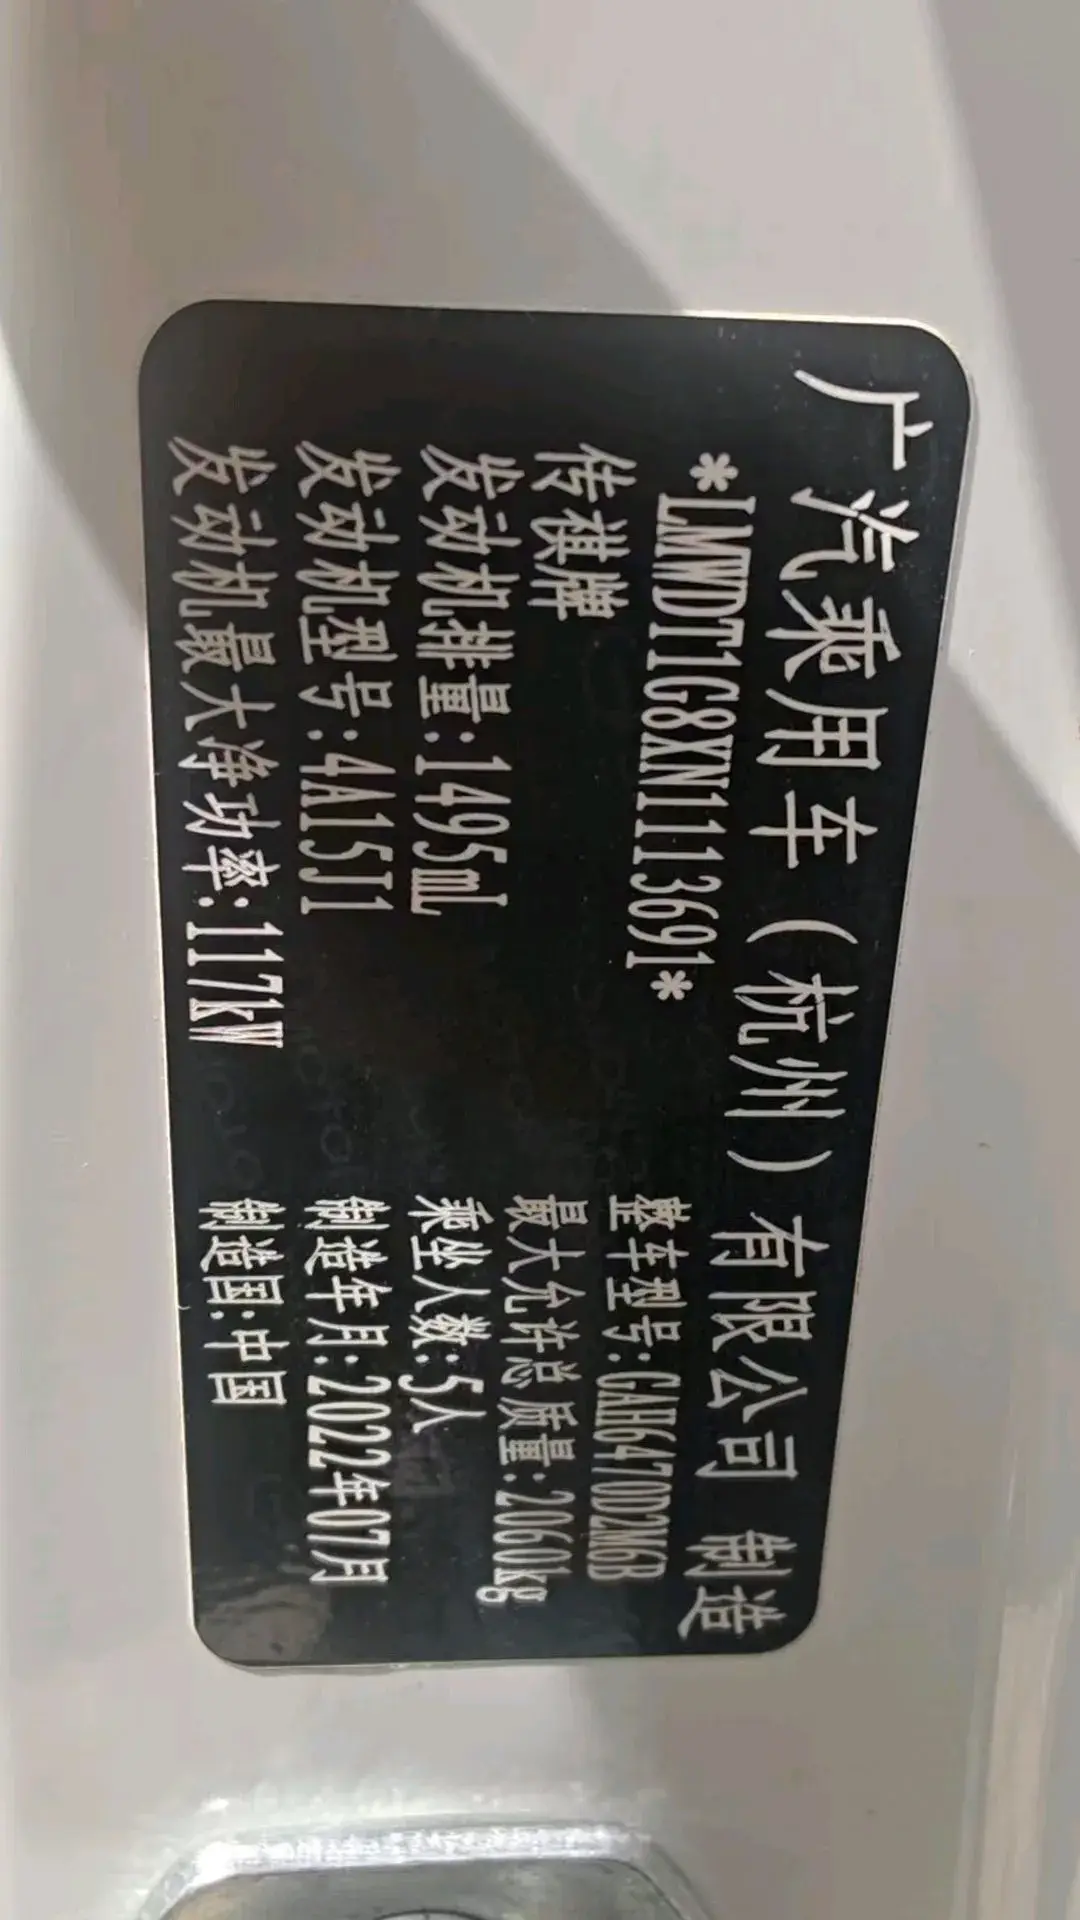 广汽乘用车（杭州）有限公司 制造
*LMWDT1G8XN1113691*
整车型号:GAH6470D2M6B
传祺牌
最大允许总质量:2060kg
发动机排量:1495mL
乘坐人数:5人
发动机型号:4A15J1
制造年月:2022年07月
发动机最大净功率:117kW
制造国:中国